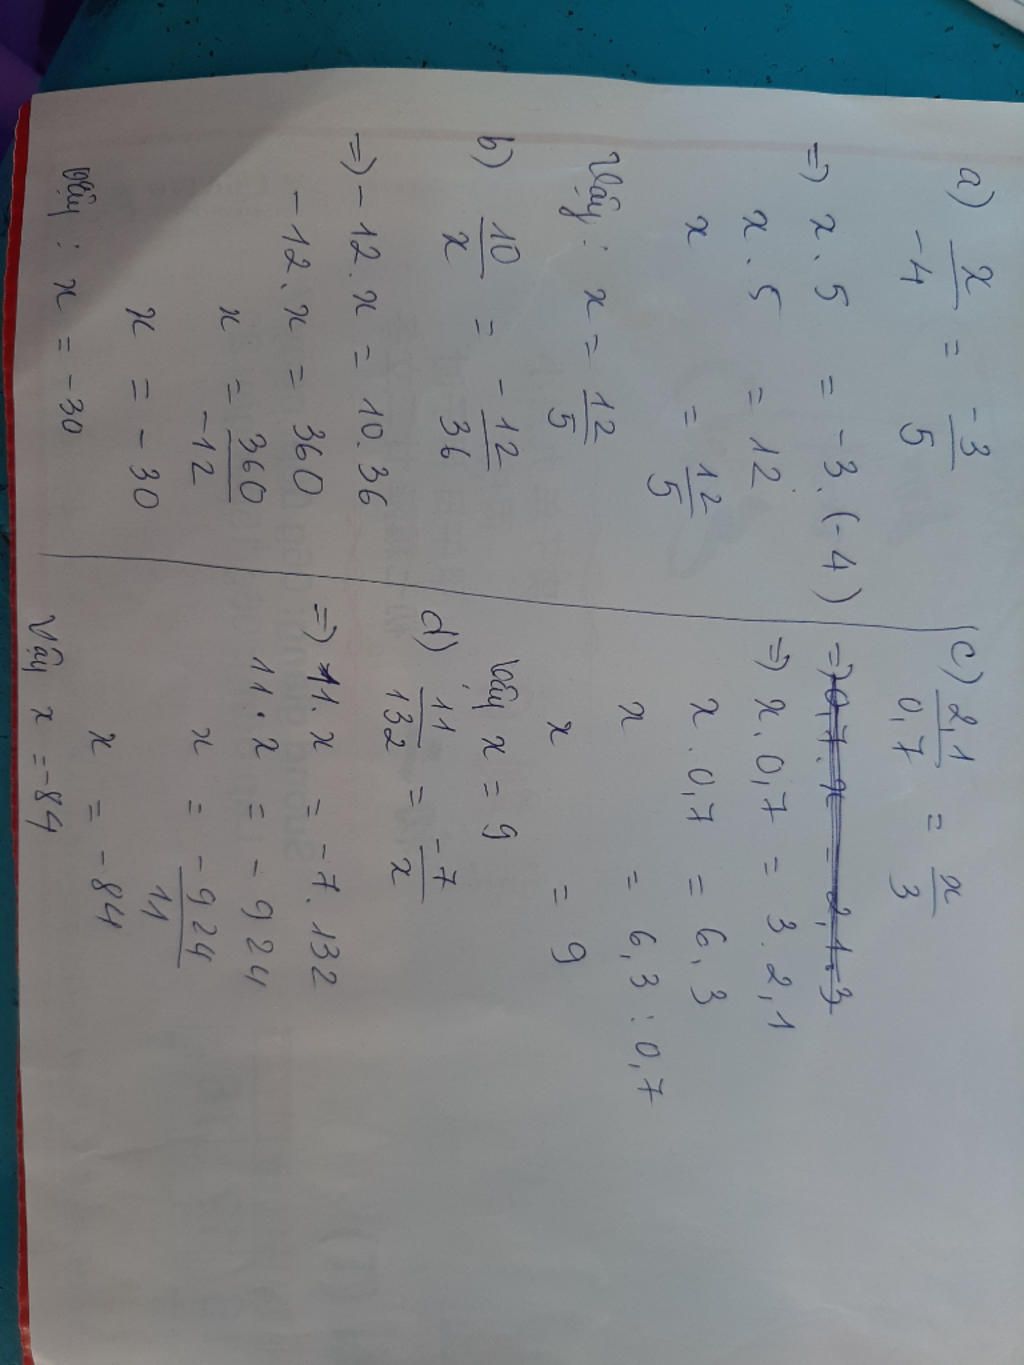 a) x/-4 = -3/5
=> x . 5 = -3 . (-4)
x . 5 = 12
x = 12/5
Vậy : x = 12/5
b) 10/x = -12/36
=> -12 . x = 10 . 36
-12 . x = 360
x = 360/-12
x = -30
Vậy : x = -30
c) 2,1/0,7 = x/3
=> 0,7 . x = 2,1 . 3
=> x . 0,7 = 3 . 2,1
x . 0,7 = 6,3
x = 6,3 : 0,7
x = 9
Vậy x = 9
d) 11/132 = -7/x
=> 11 . x = -7 . 132
11 . x = -924
x = -924/11
x = -84
Vậy x = -84